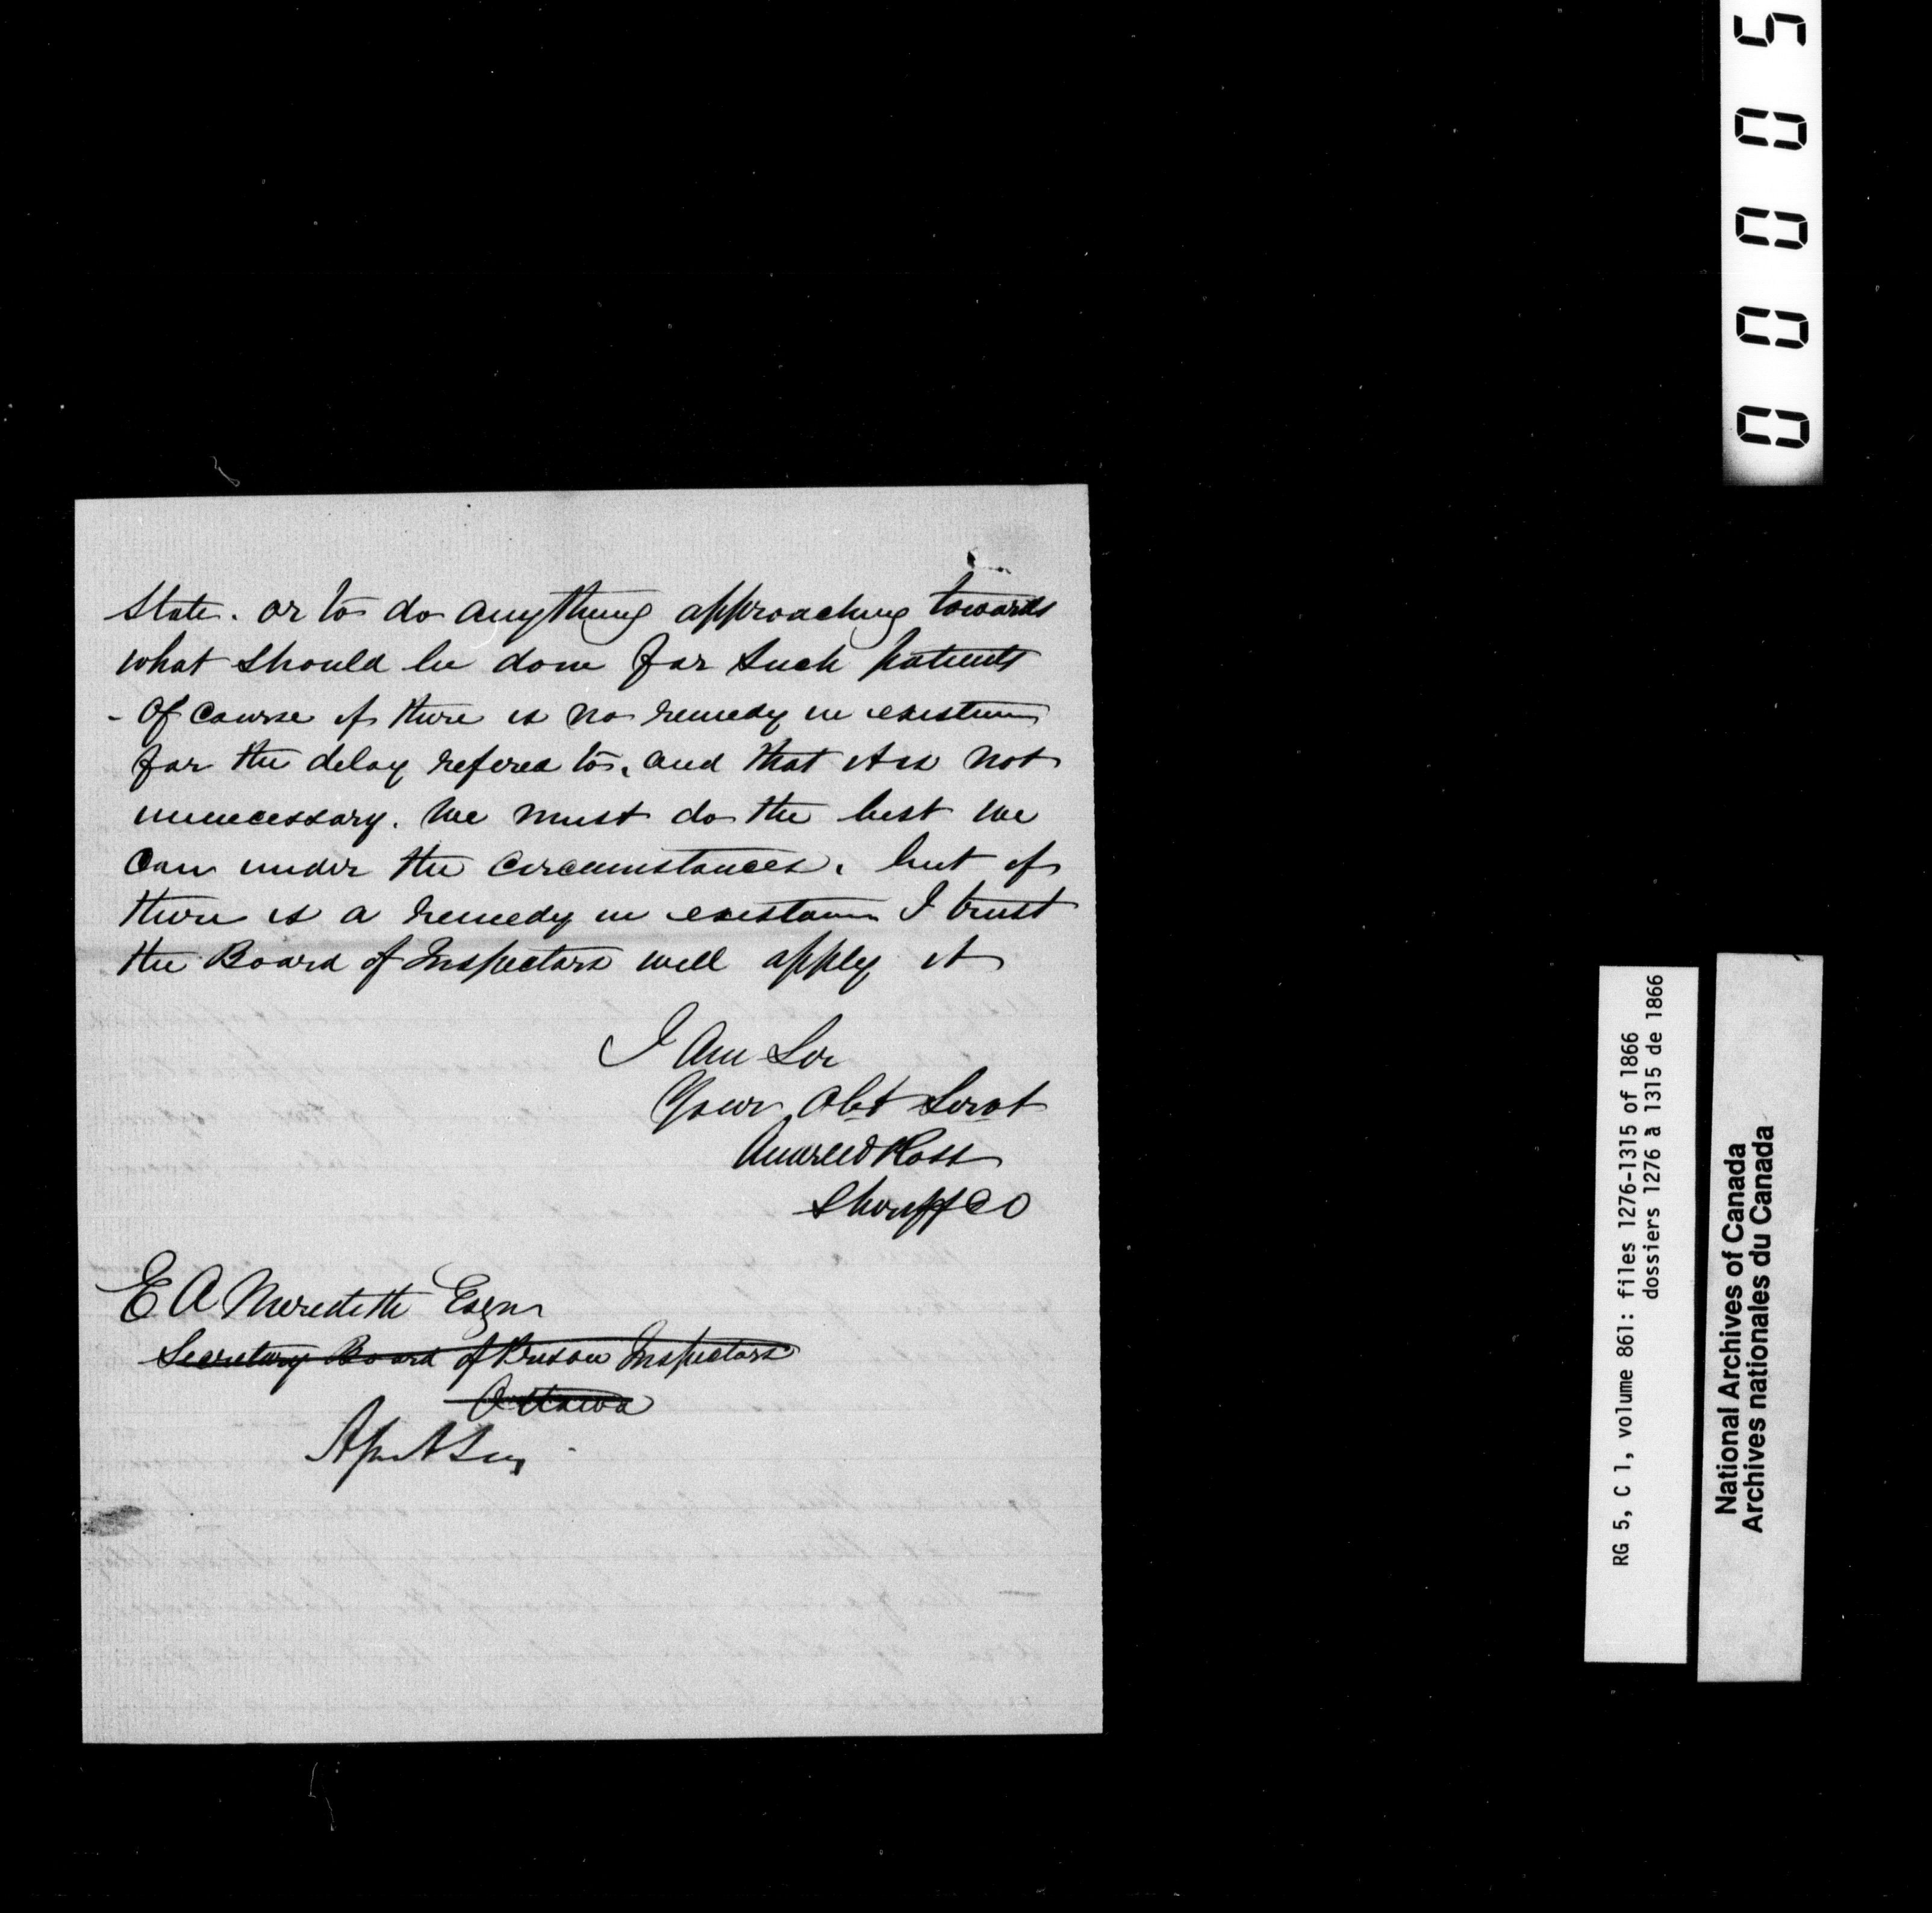 State. or to do anything approaching towards
what should be done for such patients
- Of course if there is no remedy in existence
for the delay refered to, and that it is not
unnecessary. We must do the best we
can under the circumstances, but if
there is a remedy in existence I trust
the Board of Inspectors will apply it
I am Sir
Your Obt Servt
Andrew Ross
Sheriff CO
E A Meredith Esqr
Secretary Board of Prison Inspectors
Ottawa
Asst Secy
50000
RG 5, C 1, volume 861: files 1276-1315 of 1866
dossiers 1276 à 1315 de 1866
National Archives of Canada
Archives nationales du Canada